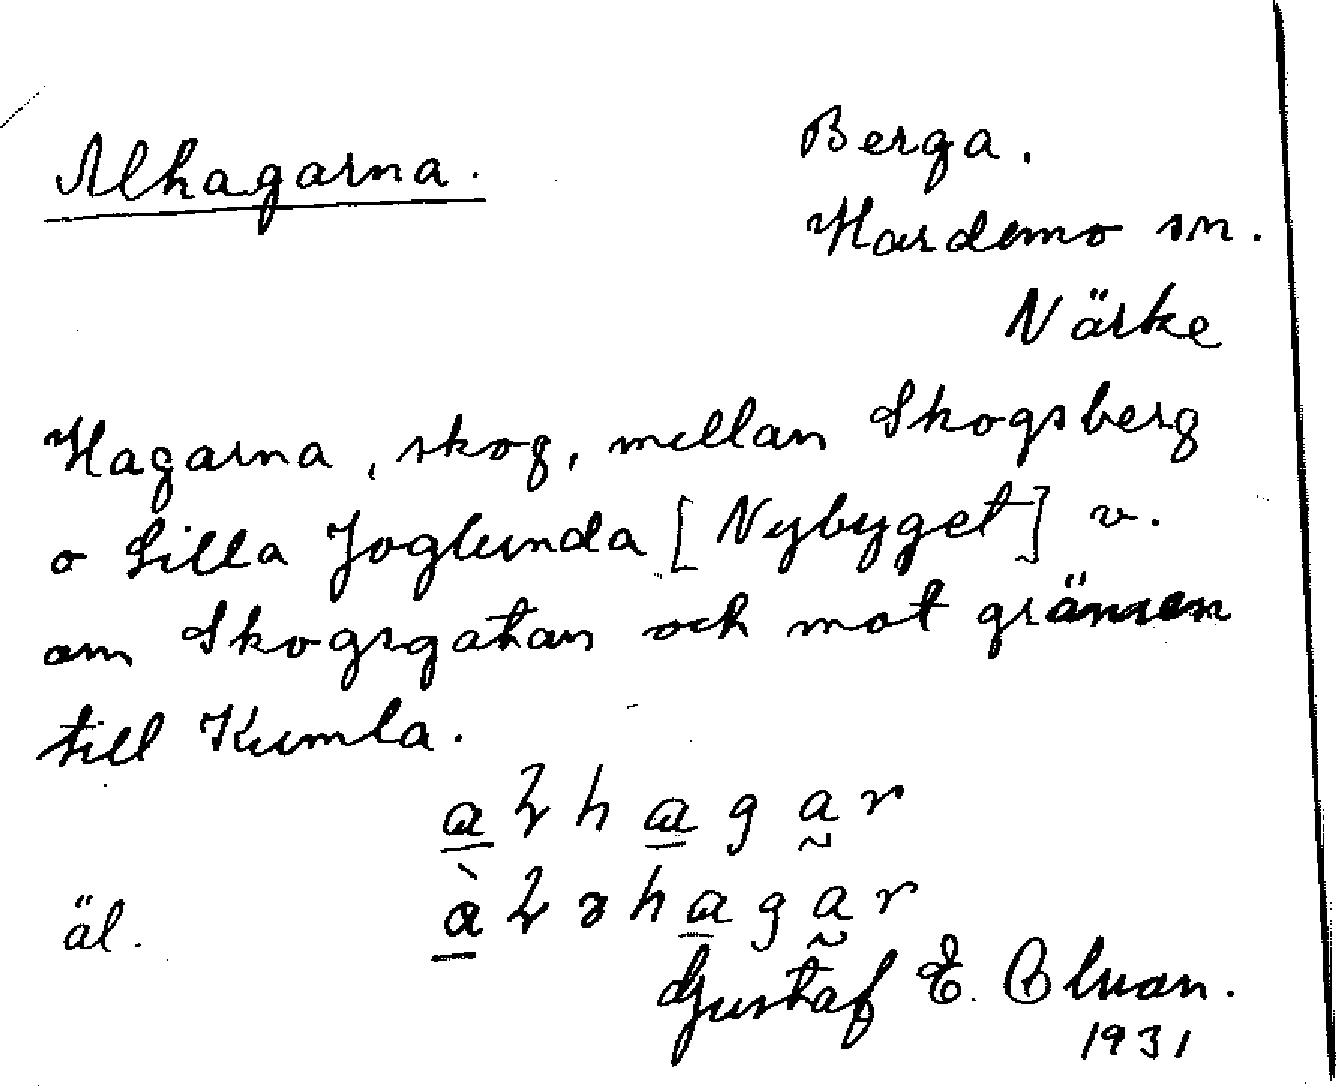 Alhagarna.
Berga.
Hardemo sn.
Närke
Hagarna, skog, mellan Skogsberg
o Lilla Joglunda [Nybyget] v.
om Skogsgatan och mot gränsen
till Kumla.
aɽhagar
äl. àɽəhagar
Gustaf E.
1931